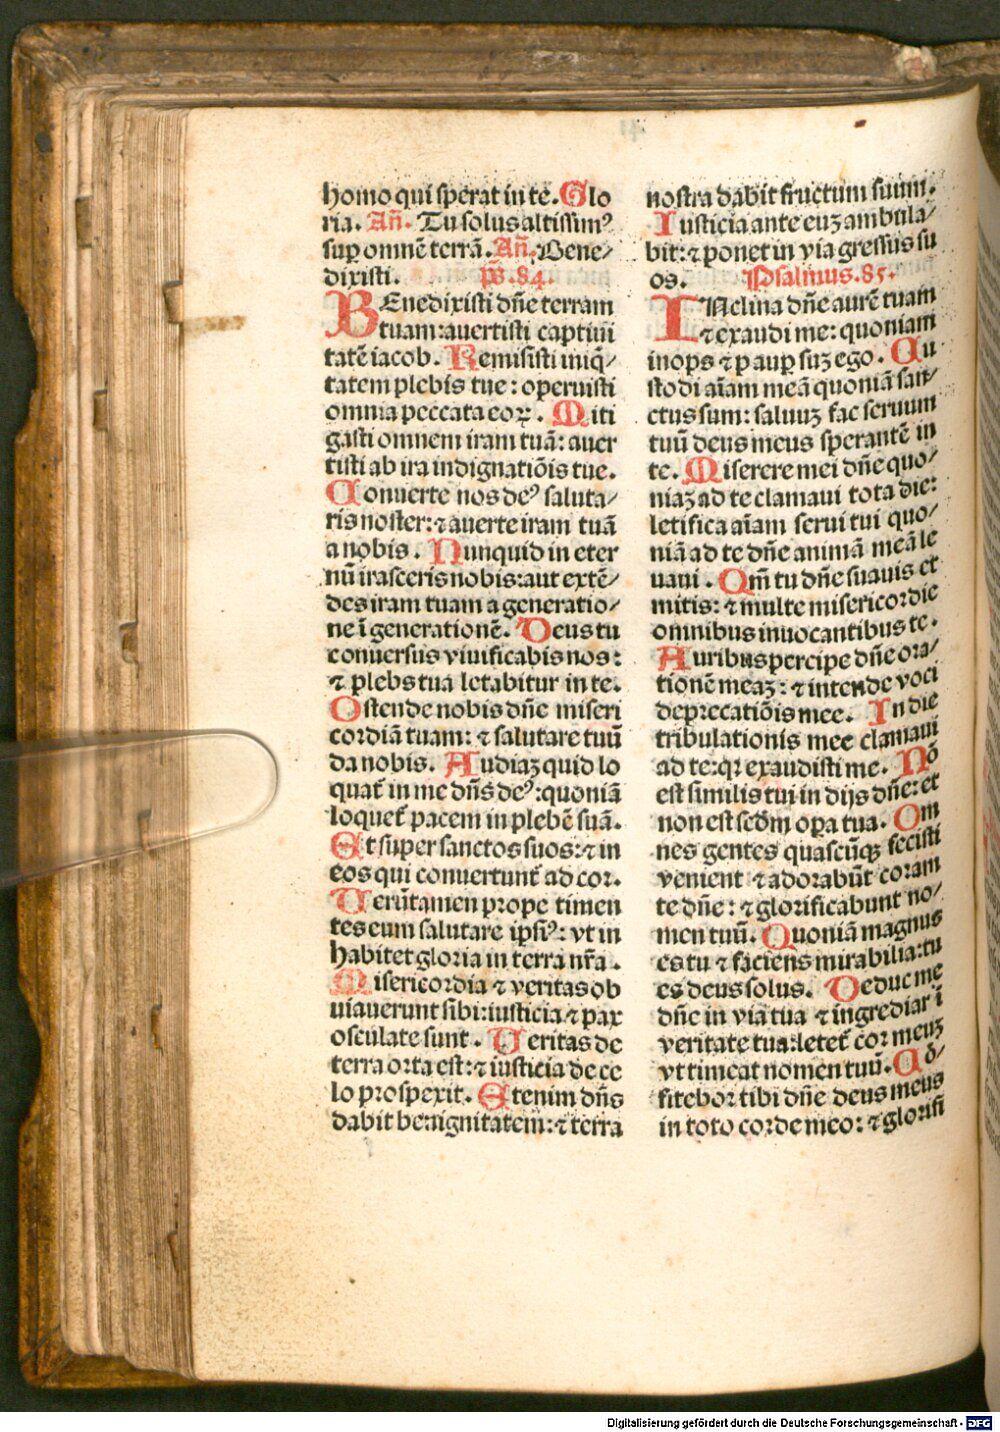 homo qui sperat in te. Glo
ria. Añ. Tu solus altissimꝰ
sup omnē terrā. Añ. Bene/
dixisti. p̄s. 84.
BEnedixisti dn̄e terram
tuam: auertisti captiui
tatē iacob. Remisisti iniq̄/
tatem plebis tue: operuisti
omnia peccata eoꝝ. Miti
gasti omnem iram tuā: auer
tisti ab ira indignatiōis tue.
Conuerte nos deꝰ saluta/
ris noster: ⁊ auerte iram tuā
a nobis. Nunquid in eter
nū irasceris nobis: aut extē/
des iram tuam a generatio/
ne ī generationē. Deus tu
conuersus viuificabis nos:
⁊ plebs tua letabitur in te.
Ostende nobis dn̄e miseri
cordiā tuam: ⁊ salutare tuū
da nobis. Audiaꝫ quid lo
quat̄ in me dn̄s deꝰ: quoniā
loquet̄ pacem in plebē suā.
Et super sanctos suos: ⁊ in
eos qui conuertunt̄ ad cor.
Uerūtamen prope timen
tes eum salutare ipsiꝰ: vt in
habitet gloria in terra nr̄a.
Misericordia ⁊ veritas ob
uiauerunt sibi: iusticia ⁊ pax
osculate sunt. Ueritas de
terra orta est: ⁊ iusticia de ce
lo prospexit. Etenim dn̄s
dabit benignitatem: ⁊ terra
nostra dabit fructum suum.
Iusticia ante euꝫ ambula/
bit: ⁊ ponet in via gressus su
os. Psalmus. 85.
INclina dn̄e aurē tuam
⁊ exaudi me: quoniam
inops ⁊ paup suꝫ ego. Cu
stodi aīam meā quoniā san/
ctus sum: saluuꝫ fac seruum
tuū deus meus sperantē in
te. Miserere mei dn̄e quo/
niaꝫ ad te clamaui tota die:
letifica aīam serui tui quo/
niā ad te dn̄e animā meā le
uaui. Qm̄ tu dn̄e suauis et
mitis: ⁊ multe misericordie
omnibus inuocantibus te.
Auribus percipe dn̄e ora/
tionē meaꝫ: ⁊ intende voci
deprecatiōis mee. In die
tribulationis mee clamaui
ad te: qꝛ exaudisti me. Nō
est similis tui in dijs dn̄e: et
non est scd̄m opa tua. Om
nes gentes quascūqꝫ fecisti
venient ⁊ adorabūt coram
te dn̄e: ⁊ glorificabunt no/
men tuū. Quoniā magnus
es tu ⁊ faciens mirabilia: tu
es deus solus. Deduc me
dn̄e in via tua ⁊ ingrediar ī
veritate tua: letet̄ cor meuꝫ
vt timeat nomen tuū. Cō/
fitebor tibi dn̄e deus meus
in toto corde meo: ⁊ glorifi
Digitalisierung gefördert durch die Deutsche Forschungsgemeinschaft - DFG